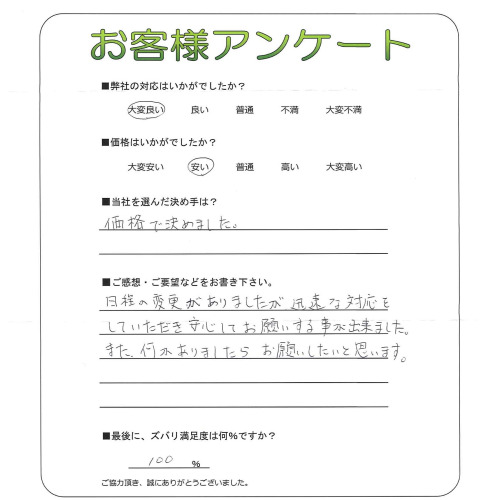 お客様アンケート
■弊社の対応はいかがでしたか?
大変良い 良い 普通 不満 大変不満
■価格はいかがでしたか?
大変安い 安い 普通 高い 大変高い
■当社を選んだ決め手は?
価格で決めました。
■ご感想・ご要望などをお書き下さい。
日程の変更がありましたが迅速な対応を
していただき安心してお願いする事が出来ました。
また、何かありましたらお願いしたいと思います。
■最後に、ズバリ満足度は何%ですか?
100 %
ご協力頂き、誠にありがとうございました。